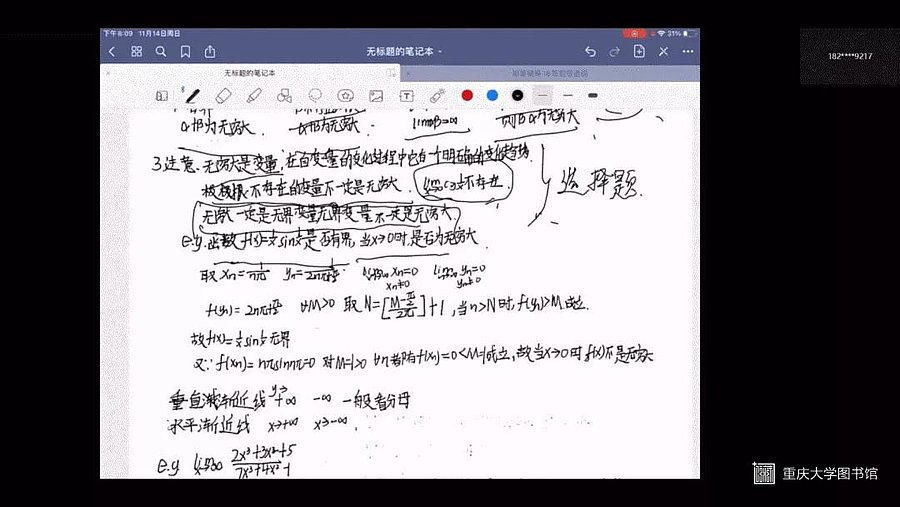 下午8:09 11月14日周日
31%
182****9217
无标题的笔记本
无标题的笔记本
α+β为无穷大 α+β为无穷大 limβ=∞
3.注意.无穷大是变量,在自变量的变化过程中它有一个明确的变化趋势
故极限不存在的变量不一定是无穷大. 不存在.
选择题.
无穷大一定是无界变量,无界变量不一定是无穷大.
e.g.函数 f(x)=1/x sin1/x 是否有界,当x→0时,是否为无穷大.
取 xn=1/nπ yn=1/(2nπ+π/2). lim xn=0 lim yn=0
n→∞ n→∞
xn≠0 yn≠0
f(yn)=2nπ+π/2 ∀M>0 取 N=[(M-π/2)/2π]+1,当n>N时,f(yn)>M成立.
故f(x)=1/x sin1/x 无界
又∵f(xn)=nπsinnπ=0 对M=1>0 ∀n都有f(xn)=0<M=1成立,故当x→0时f(x)不是无穷大
垂直渐近线 y→+∞ -∞ 一般看分母
水平渐近线 x→+∞ x→-∞.
e.g lim x→∞ (2x³+3x²+5)/(7x³+4x²-1)
重庆大学图书馆